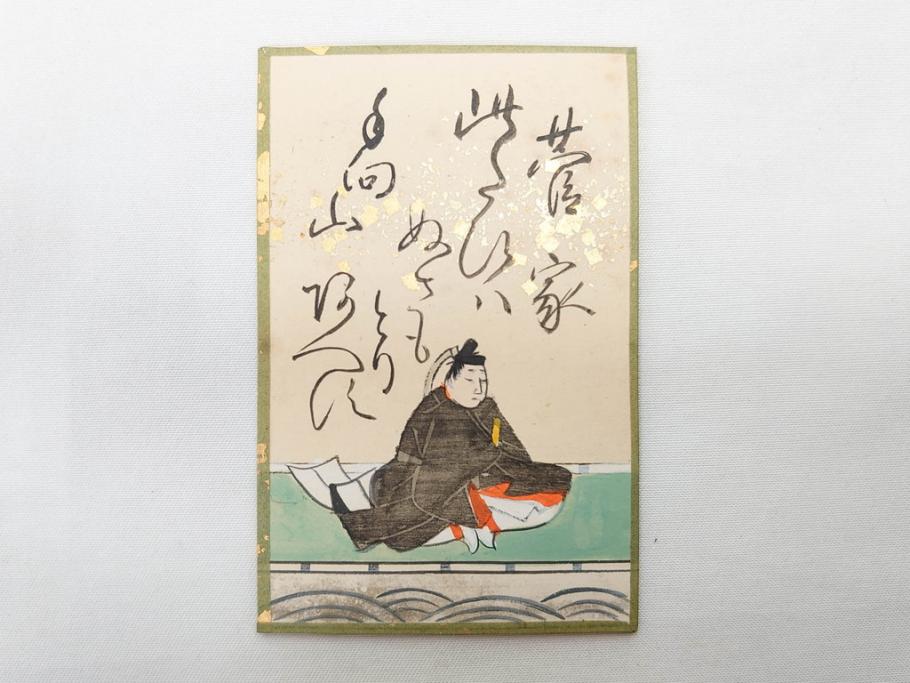 菅家
此たひハ
ぬさも
とり
阿へす
手向山